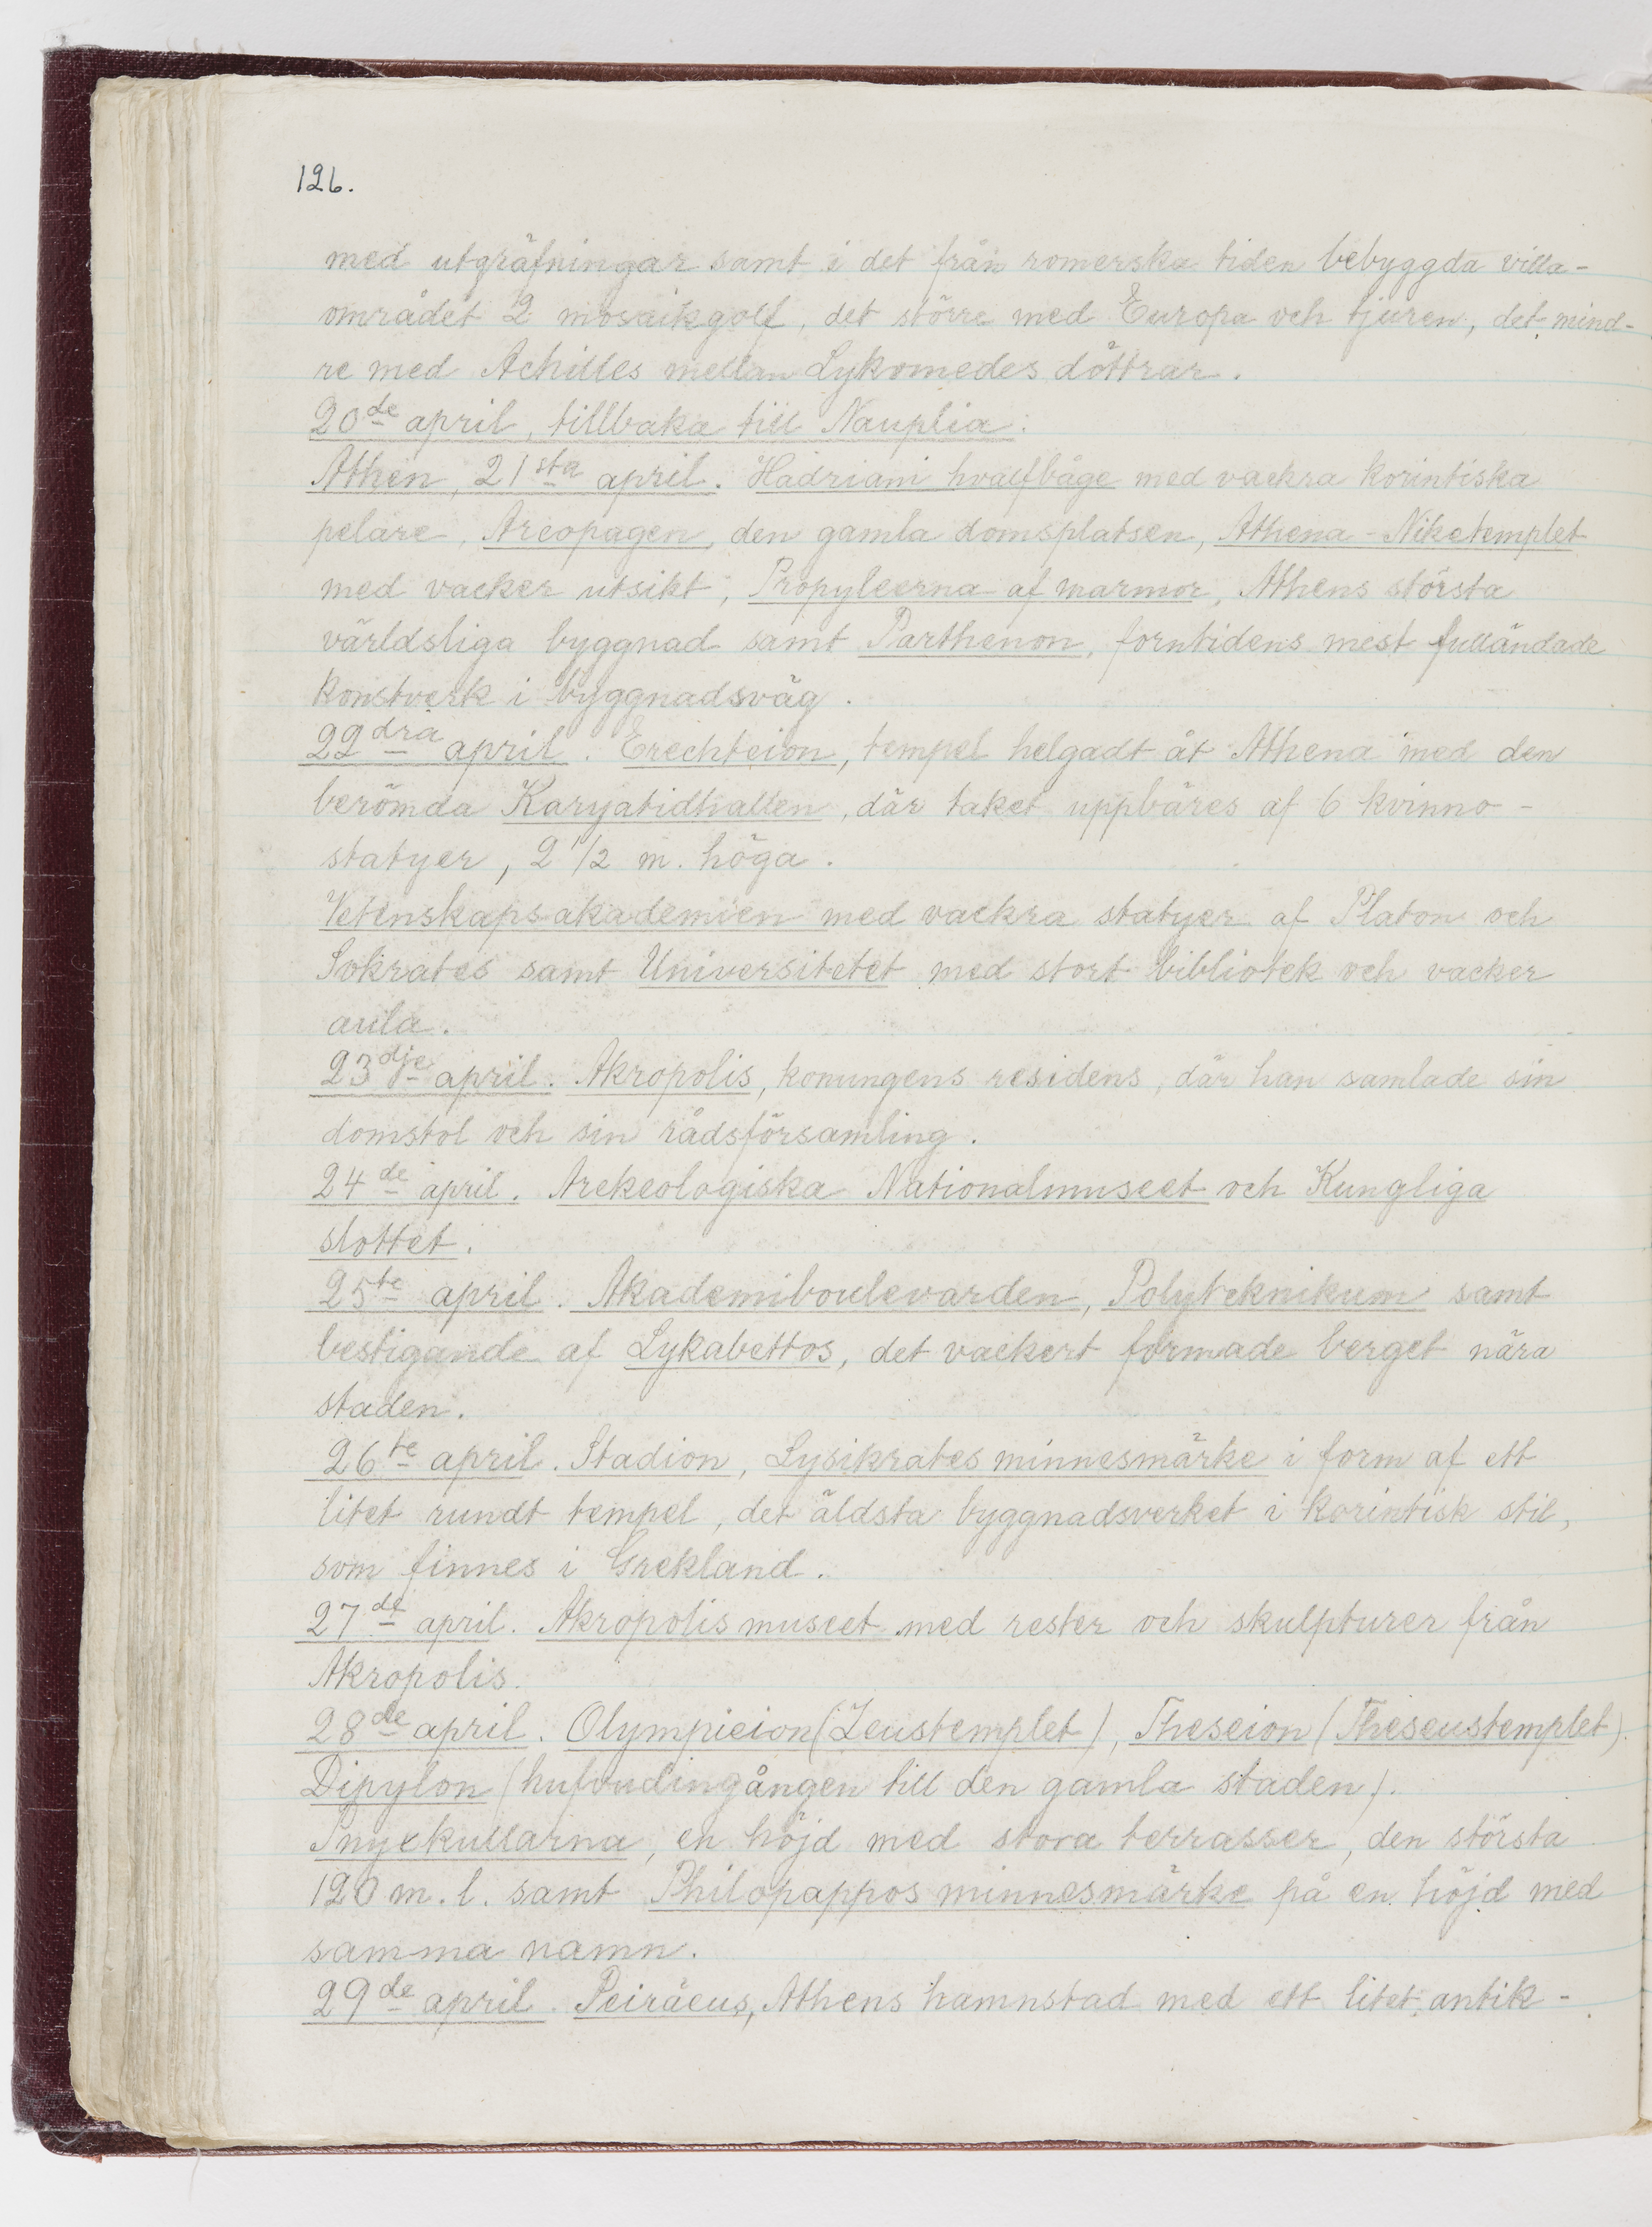 126.
med utgräfningar samt i det från romerska tiden bebyggda villa-
området 2 mosaikgolf, det större med Europa och tjuren, det mind-
re med Achilles mellan Lykomedes döttrar.
20de april, tillbaka till Nauplia:
Athen, 21sta april. Hadriani hvalfbåge med vackra korintiska
pelare, Areopagen, den gamla domsplatsen, Athena-Niketemplet
med vacker utsikt, Propyleerna af marmor, Athens största
världsliga byggnad samt Parthenon, forntidens mest fulländade
konstverk i byggnadsväg.
22dra april. Erechteion, tempel helgadt åt Athena med den
berömda Karyatidhallen, där taket uppbäres af 6 kvinno-
statyer, 2 1/2 m. höga.
Vetenskapsakademien med vackra statyer af Platon och
Sokrates samt Universitetet med stort bibliotek och vacker
aula.
23dje april. Akropolis, konungens residens, där han samlade sin
domstol och sin rådsförsamling.
24de april. Arkeologiska Nationalmuseet och Kungliga
slottet.
25te april. Akademiboulevarden, Polyteknikum samt
bestigande af Lykabettos, det vackert formade berget nära
staden.
26te april. Stadion, Lysikrates minnesmärke i form af ett
litet rundt tempel, det äldsta byggnadsverket i korintisk stil,
som finnes i Grekland.
27de april. Akropolis museet med rester och skulpturer från
Akropolis.
28de april. Olympieion (Zeustemplet), Theseion (Theseustemplet).
Dipylon (hufvudingången till den gamla staden).
Pnyxkullarna, en höjd med stora terrasser, den största
120 m. l. samt Philopappos minnesmärke på en höjd med
samma namn.
29de april. Peiräeus, Athens hamnstad med ett litet antik-